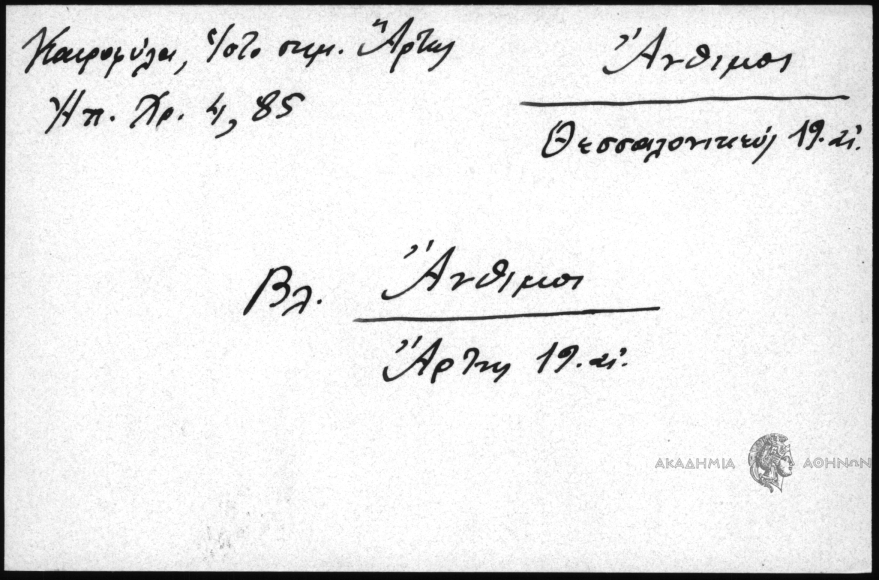 Καιροφύλα, Ἱστο σημ. Ἄρτης
Ἠπ. Χρ. 4, 85
Ἄνθιμος
Θεσσαλονικεύς 19. αἰ.
Βλ. Ἄνθιμος
Ἄρτης 19. αἰ.
ΑΚΑΔΗΜΙΑ ΑΘΗΝΩΝ